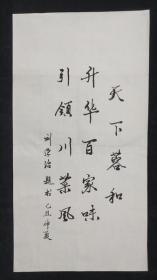 天下蓉和
升华百家味
引领川菜风
刘学治题书乙丑仲夏